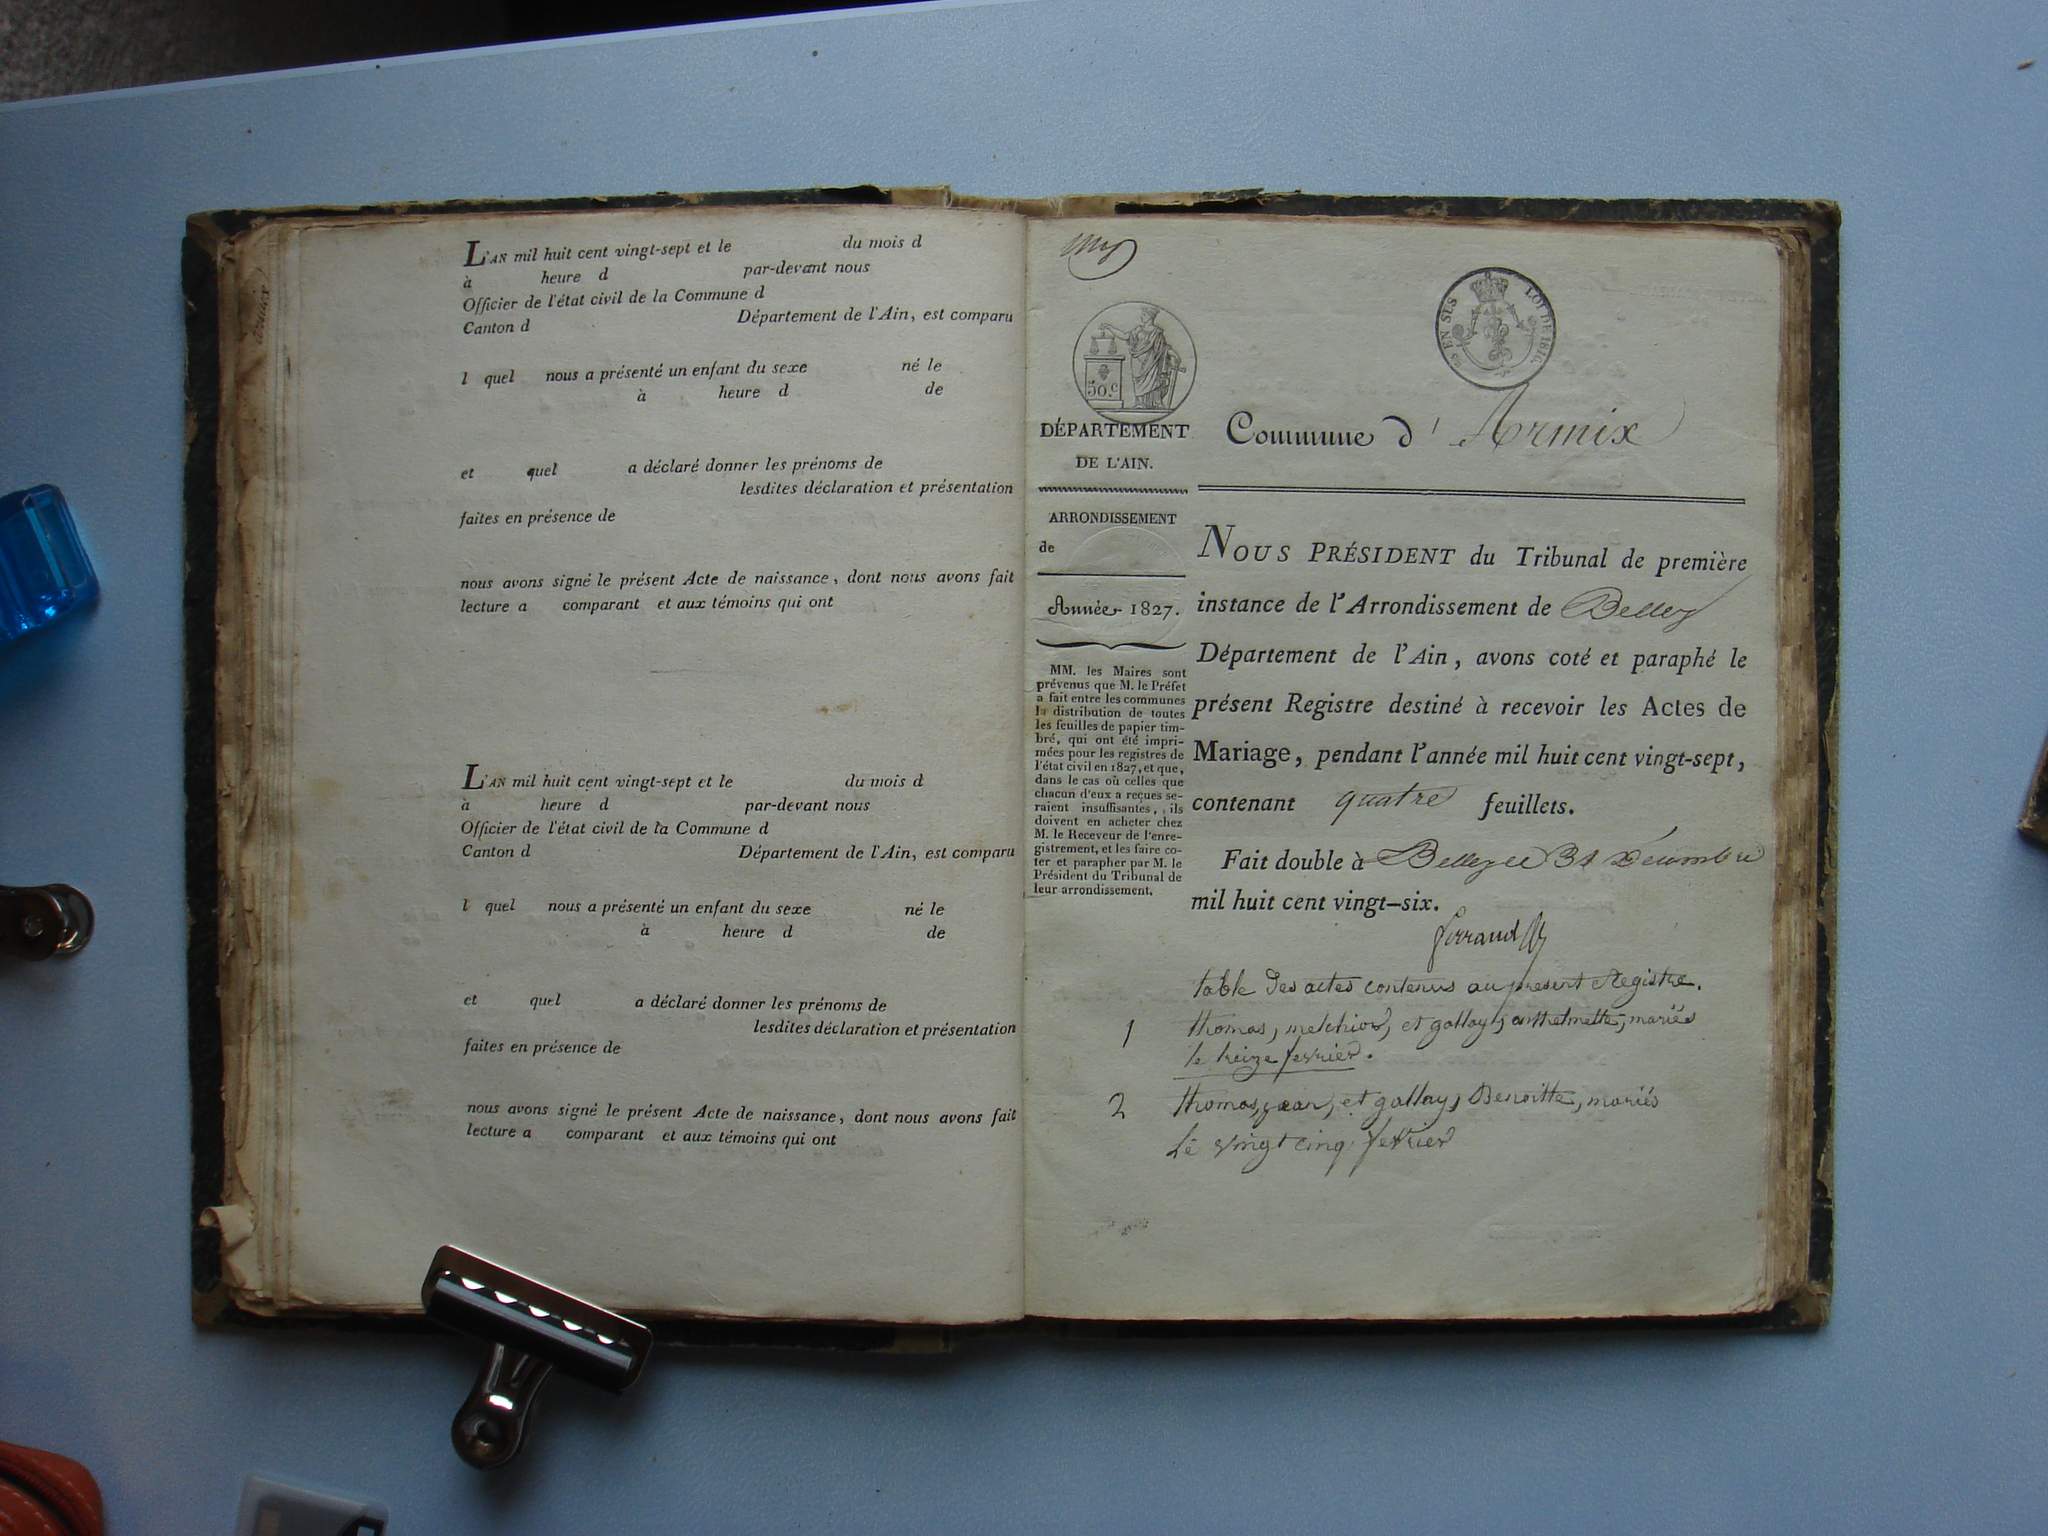 L'AN mil huit cent vingt-sept et le du mois d
à heure d par-devant nous
Officier de l'état civil de la Commune d
Canton d Département de l'Ain, est comparu
l quel nous a présenté un enfant du sexe né le
à heure d de
et quel a déclaré donner les prénoms de
lesdites déclaration et présentation
faites en présence de
nous avons signé le présent Acte de naissance, dont nous avons fait
lecture a comparant et aux témoins qui ont
L'AN mil huit cent vingt-sept et le du mois d
à heure d par-devant nous
Officier de l'état civil de la Commune d
Canton d Département de l'Ain, est comparu
l quel nous a présenté un enfant du sexe né le
à heure d de
et quel a déclaré donner les prénoms de
lesdites déclaration et présentation
faites en présence de
nous avons signé le présent Acte de naissance, dont nous avons fait
lecture a comparant et aux témoins qui ont
50.c
EN SUS LOI DE 1816.
DÉPARTEMENT
DE L'AIN.
ARRONDISSEMENT
de
Année 1827.
MM. les Maires sont
prévenus que M. le Préfet
a fait entre les communes
la distribution de toutes
les feuilles de papier tim-
bré, qui ont été impri-
mées pour les registres de
l'état civil en 1827, et que,
dans le cas où celles que
chacun d'eux a reçues se-
raient insuffisantes, ils
doivent en acheter chez
M. le Receveur de l'enre-
gistrement, et les faire co-
ter et parapher par M. le
Président du Tribunal de
leur arrondissement.
Commune d' Armix
NOUS PRÉSIDENT du Tribunal de première
instance de l'Arrondissement de Belley
Département de l'Ain, avons coté et paraphé le
présent Registre destiné à recevoir les Actes de
Mariage, pendant l'année mil huit cent vingt-sept,
contenant quatre feuillets.
Fait double à Belley ce 31 Décembre
mil huit cent vingt-six.
ferrand
table des actes contenus au present Registre.
1 thomas, melchior, et gallay, anthelmette, mariés
le treize fevrier.
2 thomas, jean, et gallay, Benoitte, mariés
Le vingt cinq fevrier